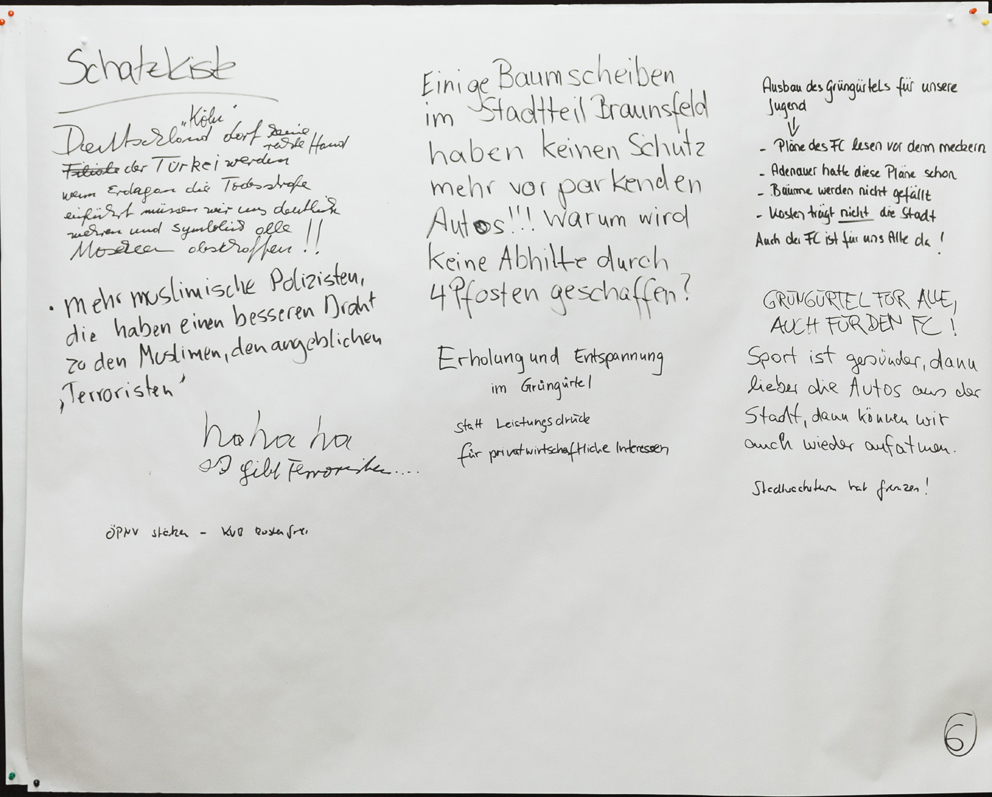 Schatzkiste
"Köln"
Deutschland darf keine
rechte Hand
Filiale der Türkei werden
wenn Erdagan die Todesstrafe
einführt müssen wir uns deutlich
wehren und symbolisch alle
Moscheen abschaffen!!
· mehr muslimische Polizisten,
die haben einen besseren Draht
zu den Muslimen, den angeblichen
'Terroristen'
ha ha ha
gibt Terroristen....
ÖPNV stärken - KVB kostenfrei
Einige Baumscheiben
im Stadtteil Braunsfeld
haben keinen Schutz
mehr vor parkenden
Autos!!! Warum wird
keine Abhilfe durch
4 Pfosten geschaffen?
Erholung und Entspannung
im Grüngürtel
statt Leistungsdruck
für privatwirtschaftliche Interessen
Ausbau des Grüngürtels für unsere
Jugend
- Pläne des FC lesen vor dem meckern
- Adenauer hatte diese Pläne schon
- Bäume werden nicht gefällt
- Kosten trägt nicht die Stadt
Auch der FC ist für uns Alle da!
GRÜNGÜRTEL FÜR ALLE,
AUCH FÜR DEN FC!
Sport ist gesünder, dann
lieber die Autos aus der
Stadt, dann können wir
auch wieder aufatmen.
Stadtwachstum hat Grenzen!
6